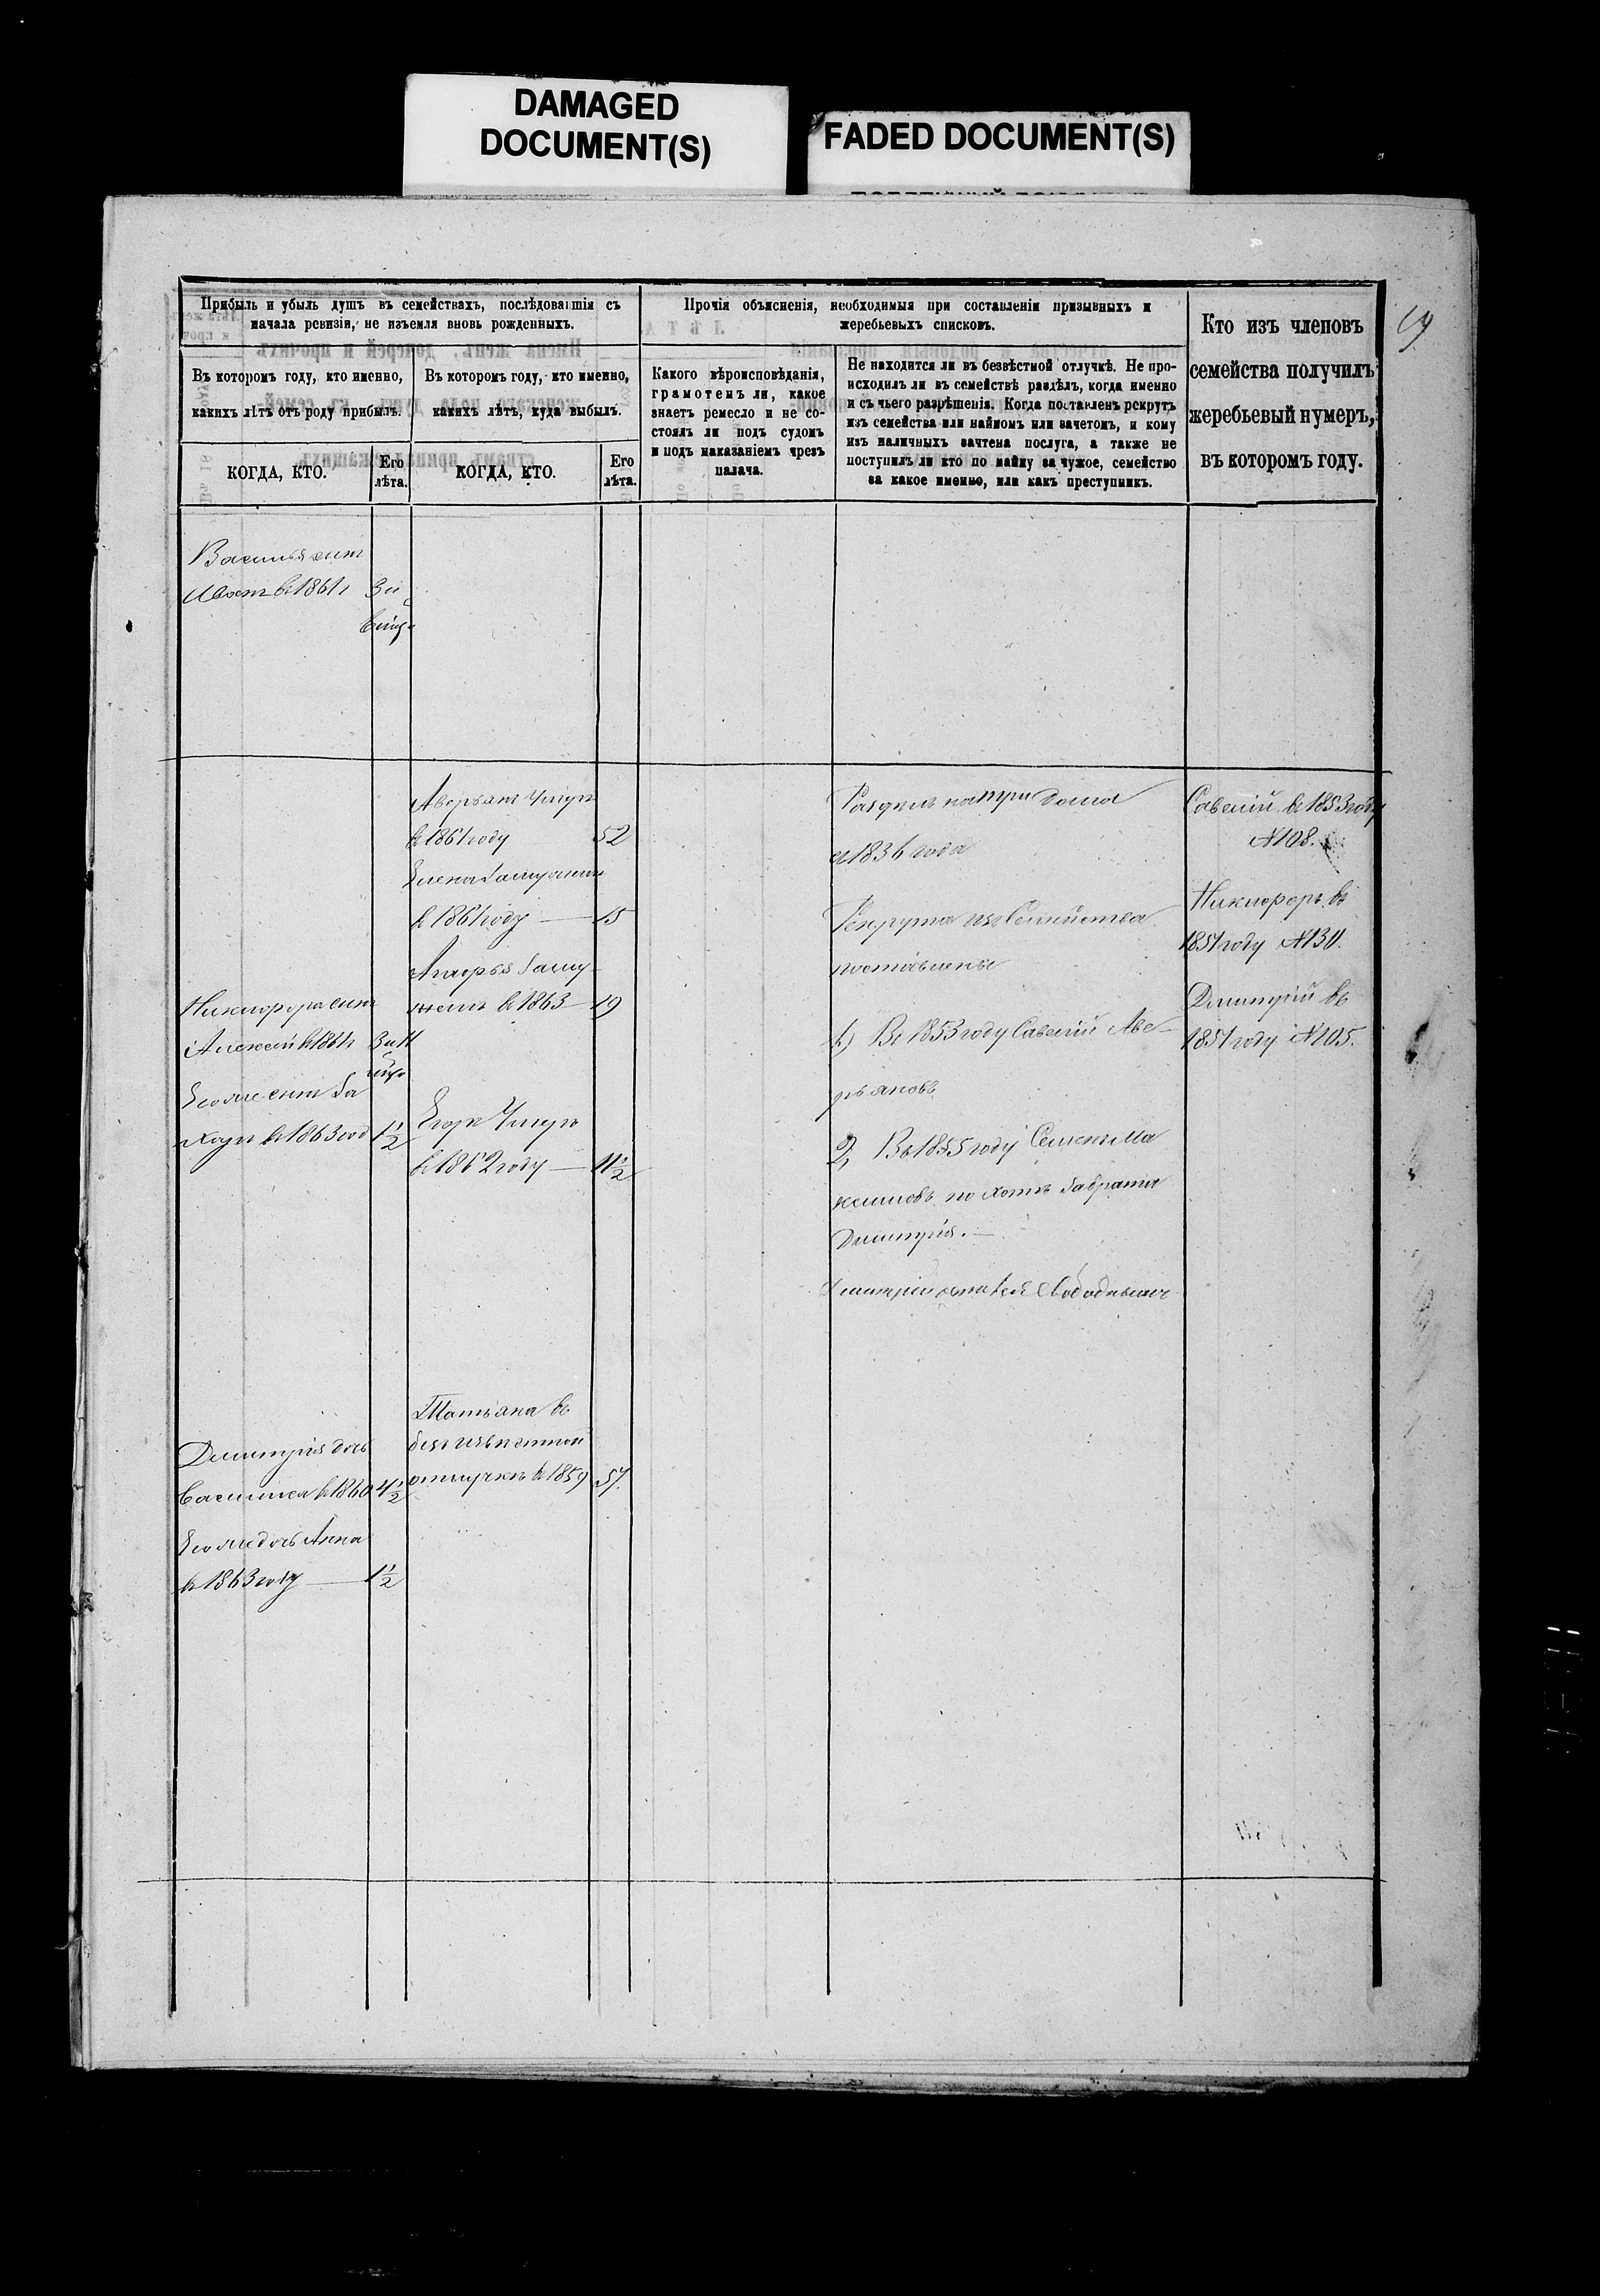 DAMAGED
DOCUMENT(S)
FADED DOCUMENT(S)
Прибыль и убыль душъ въ семействахъ, послѣдовавшія съ
начала ревизіи, не изъемля вновь рожденныхъ.
Въ которомъ году, кто именно,
какихъ лѣтъ отъ роду прибылъ.
КОГДА, КТО.
Его
лѣта.
Въ которомъ году, кто именно,
какихъ лѣтъ, куда выбылъ.
КОГДА, КТО.
Его
лѣта.
Прочія объясненія, необходимыя при составленіи призывныхъ и
жеребьевыхъ списковъ.
Какого вѣроисповѣданія,
грамотенъ ли, какое
знаетъ ремесло и не со-
стоялъ ли подъ судомъ
и подъ наказаніемъ чрезъ
палача.
Не находится ли въ безвѣстной отлучкѣ. Не про-
исходилъ ли въ семействѣ раздѣлъ, когда именно
и съ чьего разрѣшенія. Когда поставленъ рекрутъ
изъ семейства или наймомъ или зачетомъ, и кому
изъ наличныхъ зачтена послуга, а также не
поступилъ ли кто по найму за чужое, семейство
за какое именно, или какъ преступникъ.
Кто изъ членовъ
семейства получилъ
жеребьевый нумеръ,
въ которомъ году.
19
Василья сынъ
въ 1861 г 3 и
Никифора сынъ
Алексей в 1861 г 3 и
Его же сынъ За
харъ в 1863 год 1½
Дмитрія дочь
Василиса в 1860 4½
Его же дочь Анна
в 1863 году — 1½
Аверьянъ Умеръ
в 1861 году 52
Елена Замужемъ
в 1861 году — 15
Аграфья Заму
жемъ в 1863 — 19
Егоръ Умеръ
в 1862 году — 11½
Татьяна въ
безъизвѣстной
отлучкѣ в 1859 57.
Разделъ на три дома
съ 1836 года
Рекрута изъ Семейства
поставлены
1) Въ 1853 году Савелій Аве-
рьяновъ
2, Въ 1855 году Семенъ Ма
ксимовъ по хотѣ За брата
Дмитрія. —
Дмитрій остался свободнымъ
Савелій в 1853 году
№ 108.
Никифоръ въ
1851 году № 130.
Дмитрій въ
1851 году № 105.